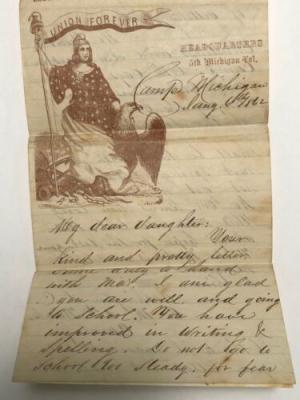 UNION FOREVER
HEADQUARTERS
5th Michigan Vol.
Camp Michigan
Jany 4th/62
My dear daughter:
Your
kind and pretty letter
came duly to hand
with Ma. I am glad
you are well and going
to School. You have
improved in Writing &
Spelling. Do not go to
School too steady, for fear